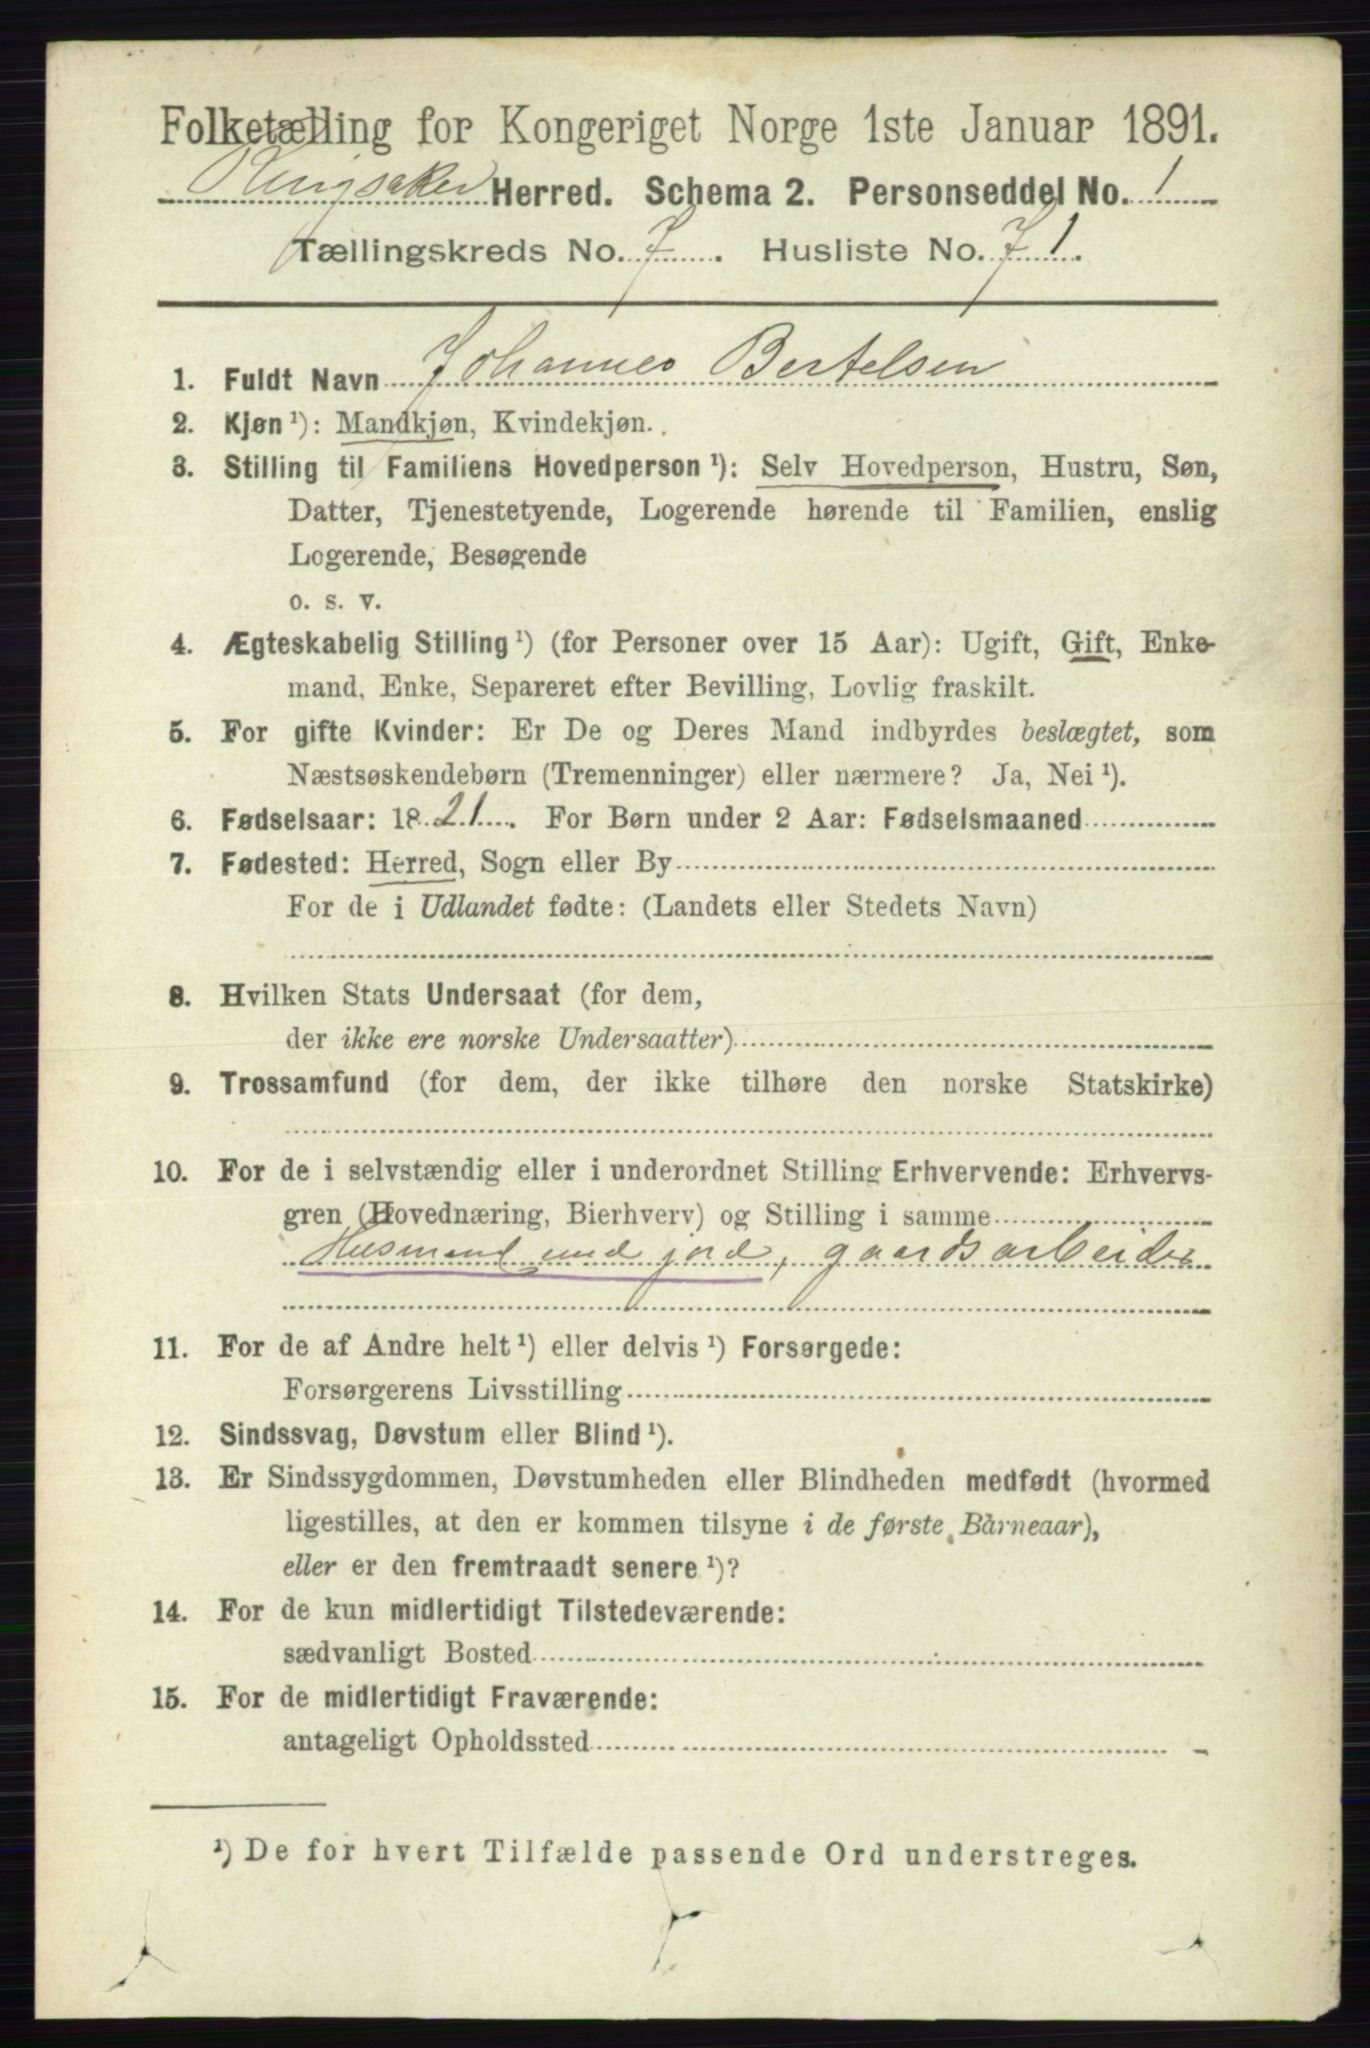 Folketælling for Kongeriget Norge 1ste Januar 1891.
Ringsaker Herred. Schema 2. Personseddel No. 1
Tællingskreds No. 7. Husliste No. 71.
1. Fuldt Navn Johannes Bertelsen
2. Kjøn ¹): Mandkjøn, Kvindekjøn.
3. Stilling til Familiens Hovedperson ¹): Selv Hovedperson, Hustru, Søn,
Datter, Tjenestetyende, Logerende hørende til Familien, enslig
Logerende, Besøgende
o. s. v.
4. Ægteskabelig Stilling ¹) (for Personer over 15 Aar): Ugift, Gift, Enke-
mand, Enke, Separeret efter Bevilling, Lovlig fraskilt.
5. For gifte Kvinder: Er De og Deres Mand indbyrdes beslægtet, som
Næstsøskendebørn (Tremenninger) eller nærmere? Ja, Nei ¹).
6. Fødselsaar: 1821. For Børn under 2 Aar: Fødselsmaaned
7. Fødested: Herred, Sogn eller By
For de i Udlandet fødte: (Landets eller Stedets Navn)
8. Hvilken Stats Undersaat (for dem,
der ikke ere norske Undersaatter)
9. Trossamfund (for dem, der ikke tilhøre den norske Statskirke)
10. For de i selvstændig eller i underordnet Stilling Erhvervende: Erhvervs-
gren (Hovednæring, Bierhverv) og Stilling i samme
Husmand med jord, gaardsarbeider
11. For de af Andre helt ¹) eller delvis ¹) Forsørgede:
Forsørgerens Livsstilling
12. Sindssvag, Døvstum eller Blind ¹).
13. Er Sindssygdommen, Døvstumheden eller Blindheden medfødt (hvormed
ligestilles, at den er kommen tilsyne i de første Barneaar),
eller er den fremtraadt senere ¹)?
14. For de kun midlertidigt Tilstedeværende:
sædvanligt Bosted
15. For de midlertidigt Fraværende:
antageligt Opholdssted
¹) De for hvert Tilfælde passende Ord understreges.